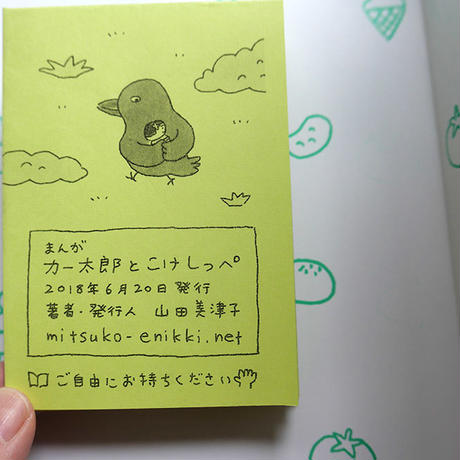 まんが
カー太郎とこけしっぺ
2018年6月20日発行
著者・発行人 山田美津子
mitsuko-enikki.net
ご自由にお持ちください